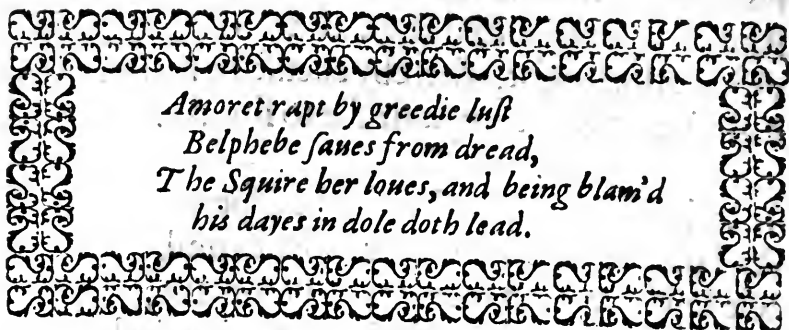 Amoret rapt by greedie luſt
Belphebe ſaues from dread,
The Squire her loues, and being blam'd
his dayes in dole doth lead.